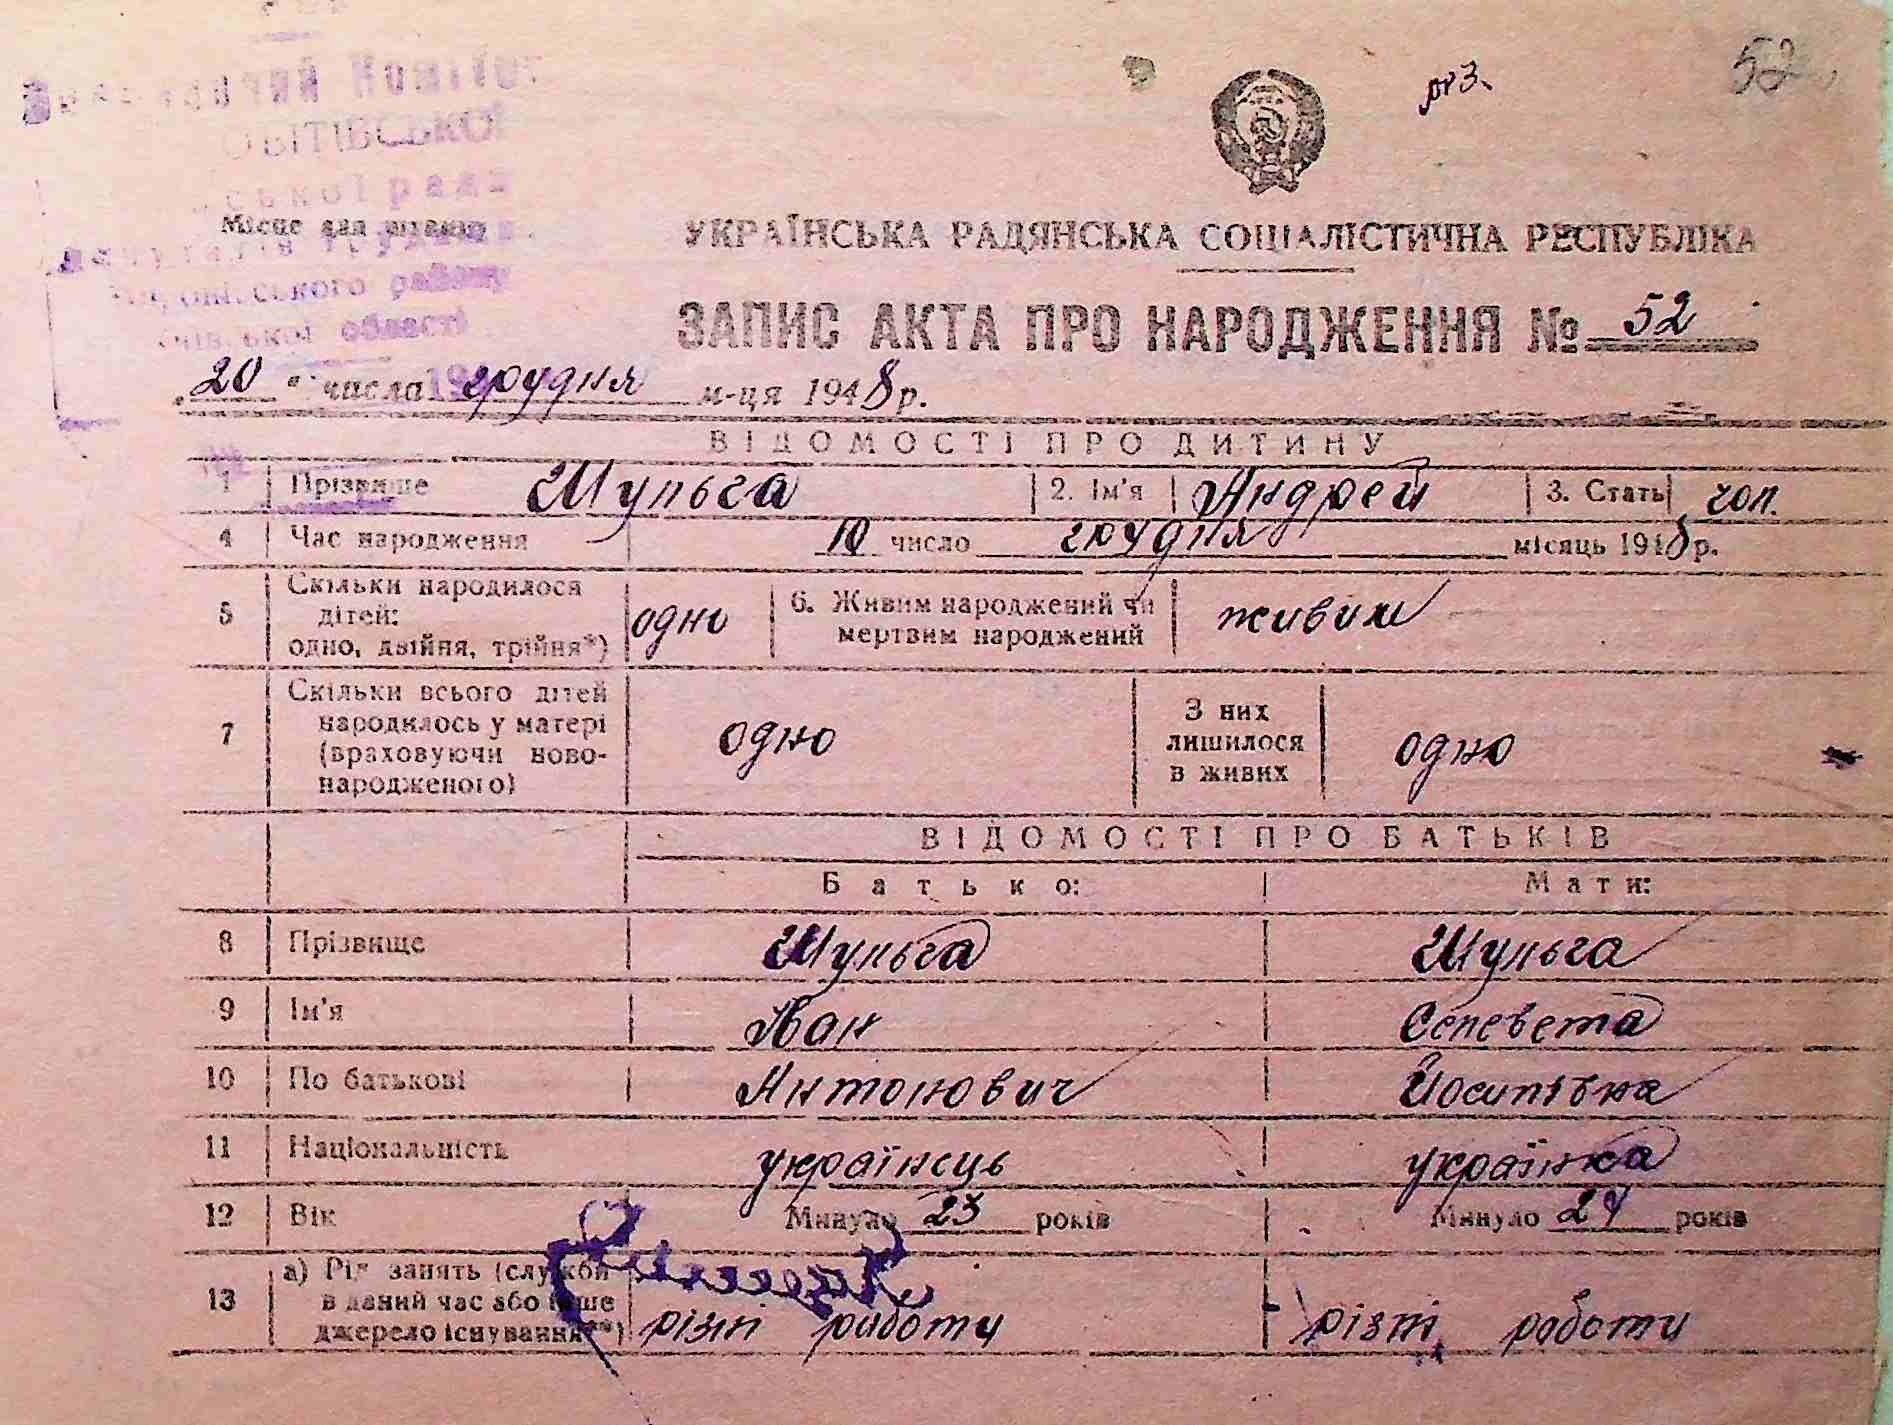 52
ОВІТІВСЬКОЇ
ради
Місце для штампу
району
області
УКРАЇНСЬКА РАДЯНСЬКА СОЦІАЛІСТИЧНА РЕСПУБЛІКА
ЗАПИС АКТА ПРО НАРОДЖЕННЯ № 52
„20“ числа грудня м-ця 1948 р.
ВІДОМОСТІ ПРО ДИТИНУ
1 Прізвище Шульга 2. Ім'я Андрей 3. Стать чол.
4 Час народження 10 число грудня місяць 1948 р.
5 Скільки народилося дітей: одно, двійня, трійня*) одно 6. Живим народжений чи мертвим народжений живим
7 Скільки всього дітей народилось у матері (враховуючи ново-народженого) одно З них лишилося в живих одно
ВІДОМОСТІ ПРО БАТЬКІВ
Батько: Мати:
8 Прізвище Шульга Шульга
9 Ім'я Іван Селевета
10 По батькові Антонович Йосипівна
11 Національність українець українка
12 Вік Минуло 23 років Минуло 24 років
13 а) Рід занять (служби в даний час або інше джерело існування**) різні работи різні работи